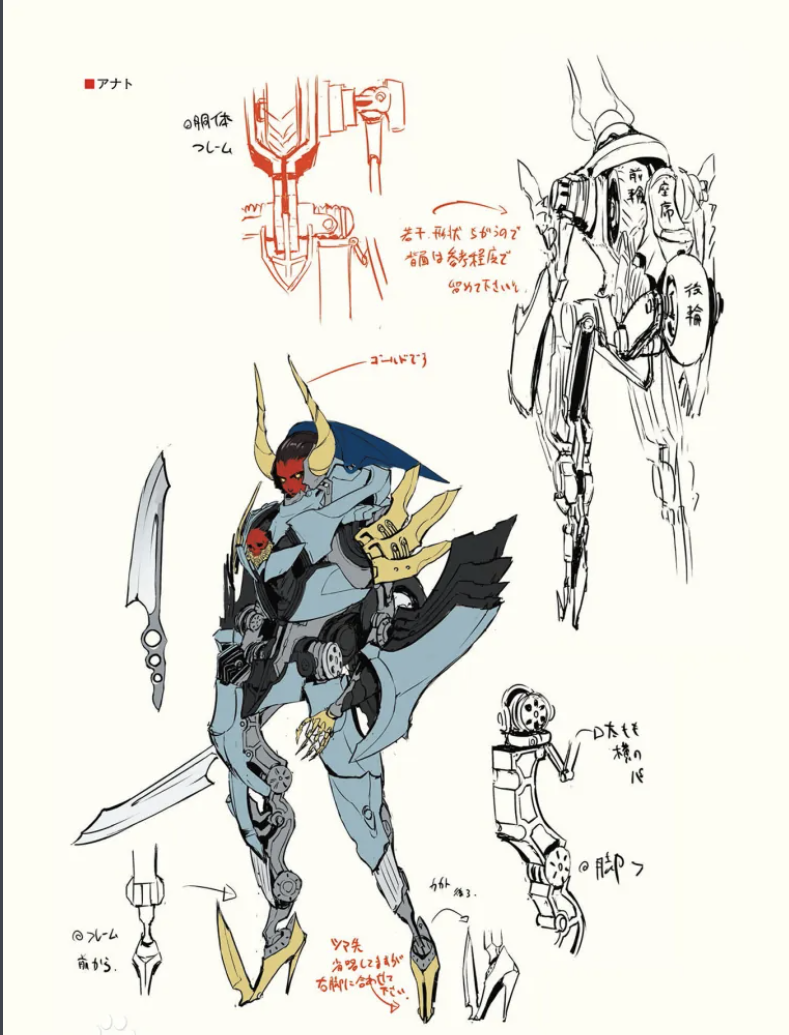 ■アナト
◎胴体
フレーム
若干、形状ちがうので
背面は参考程度で
留めて下さい。
前輪
座席
後輪
ゴールドです
太もも
横の
◎脚
◎フレーム
前から.
カカト
後ろ.
ツマ先
省略してますが
右脚に合わせて
下さい.